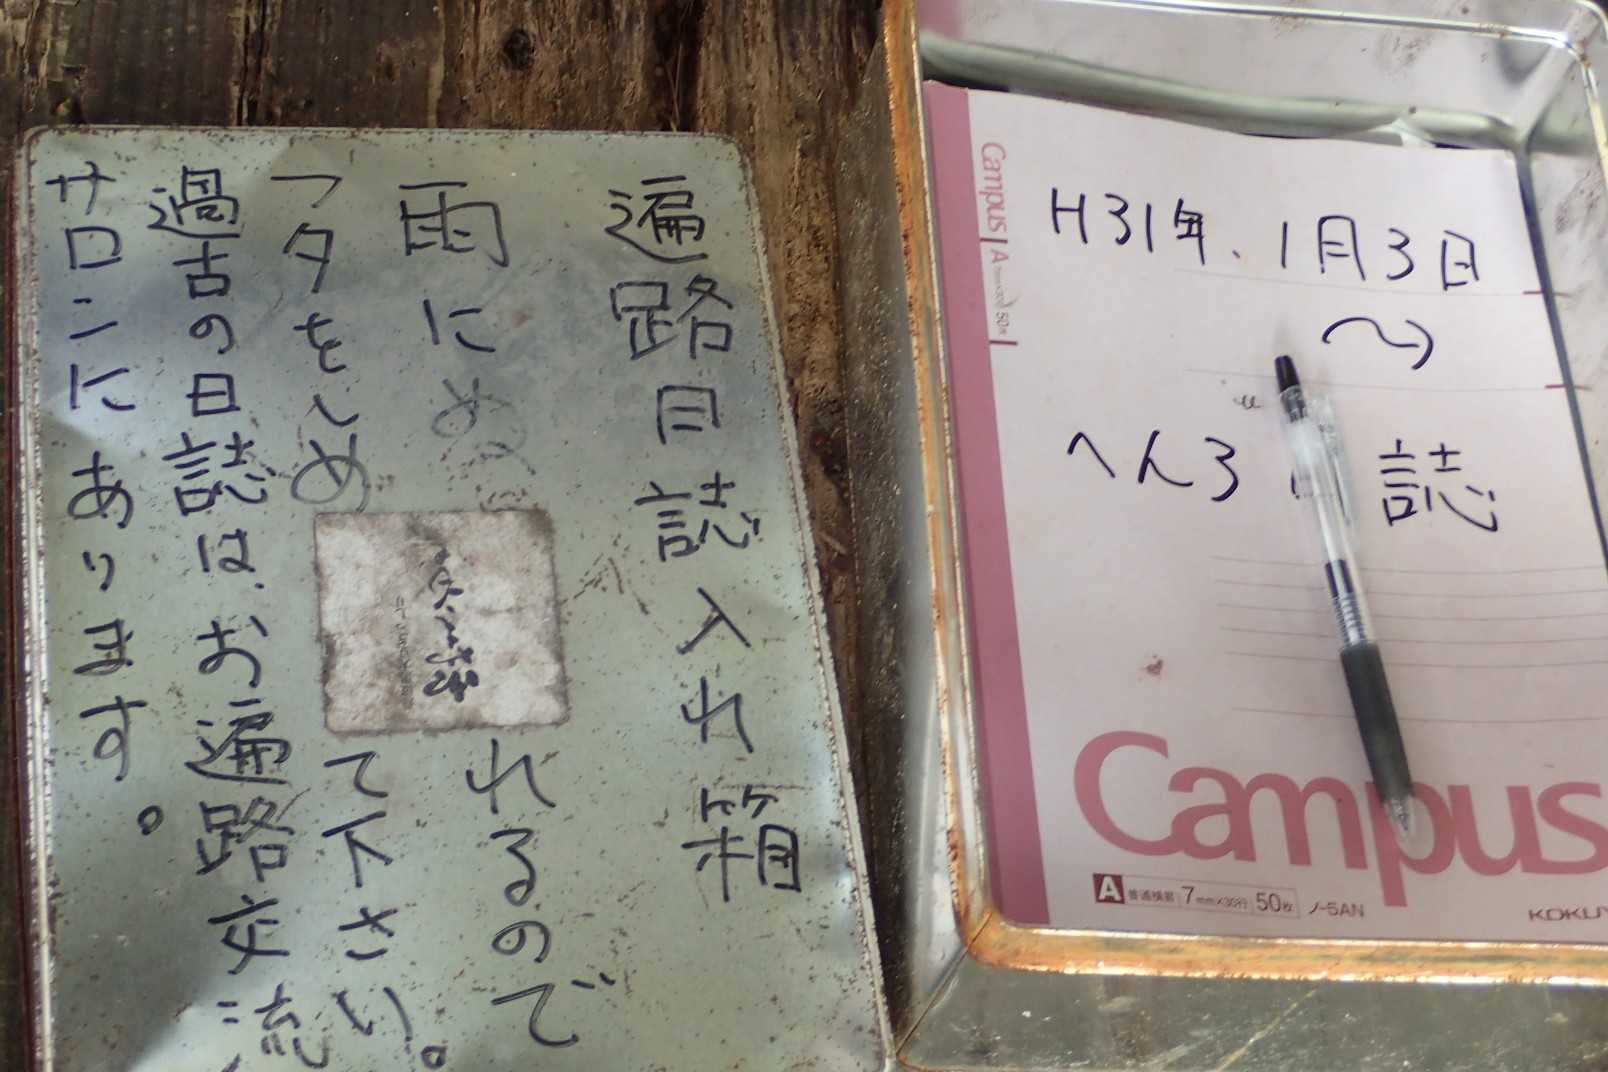 遍路日誌入れ箱
雨にぬれるので
フタをしめて下さい。
過古の日誌は、お遍路交流
サロンにあります。
Campus A 7mm×30行 50枚
H31年.1月3日
〜
へんろ 誌
Campus
A 普通横罫 7mm×30行 50枚 ノ-5AN KOKUY